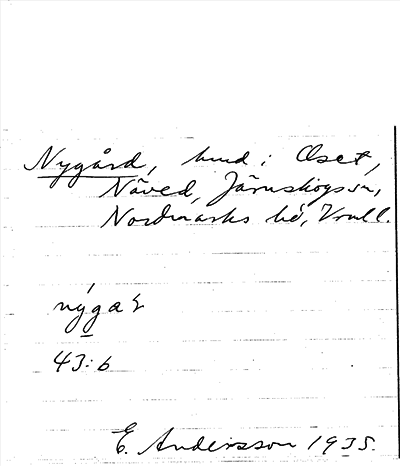 Nygård, hmd i Öset,
Näved, Järnskogs sn,
Nordmarks hd, Vrml.
nýga
43:6
E. Andersson 1935.